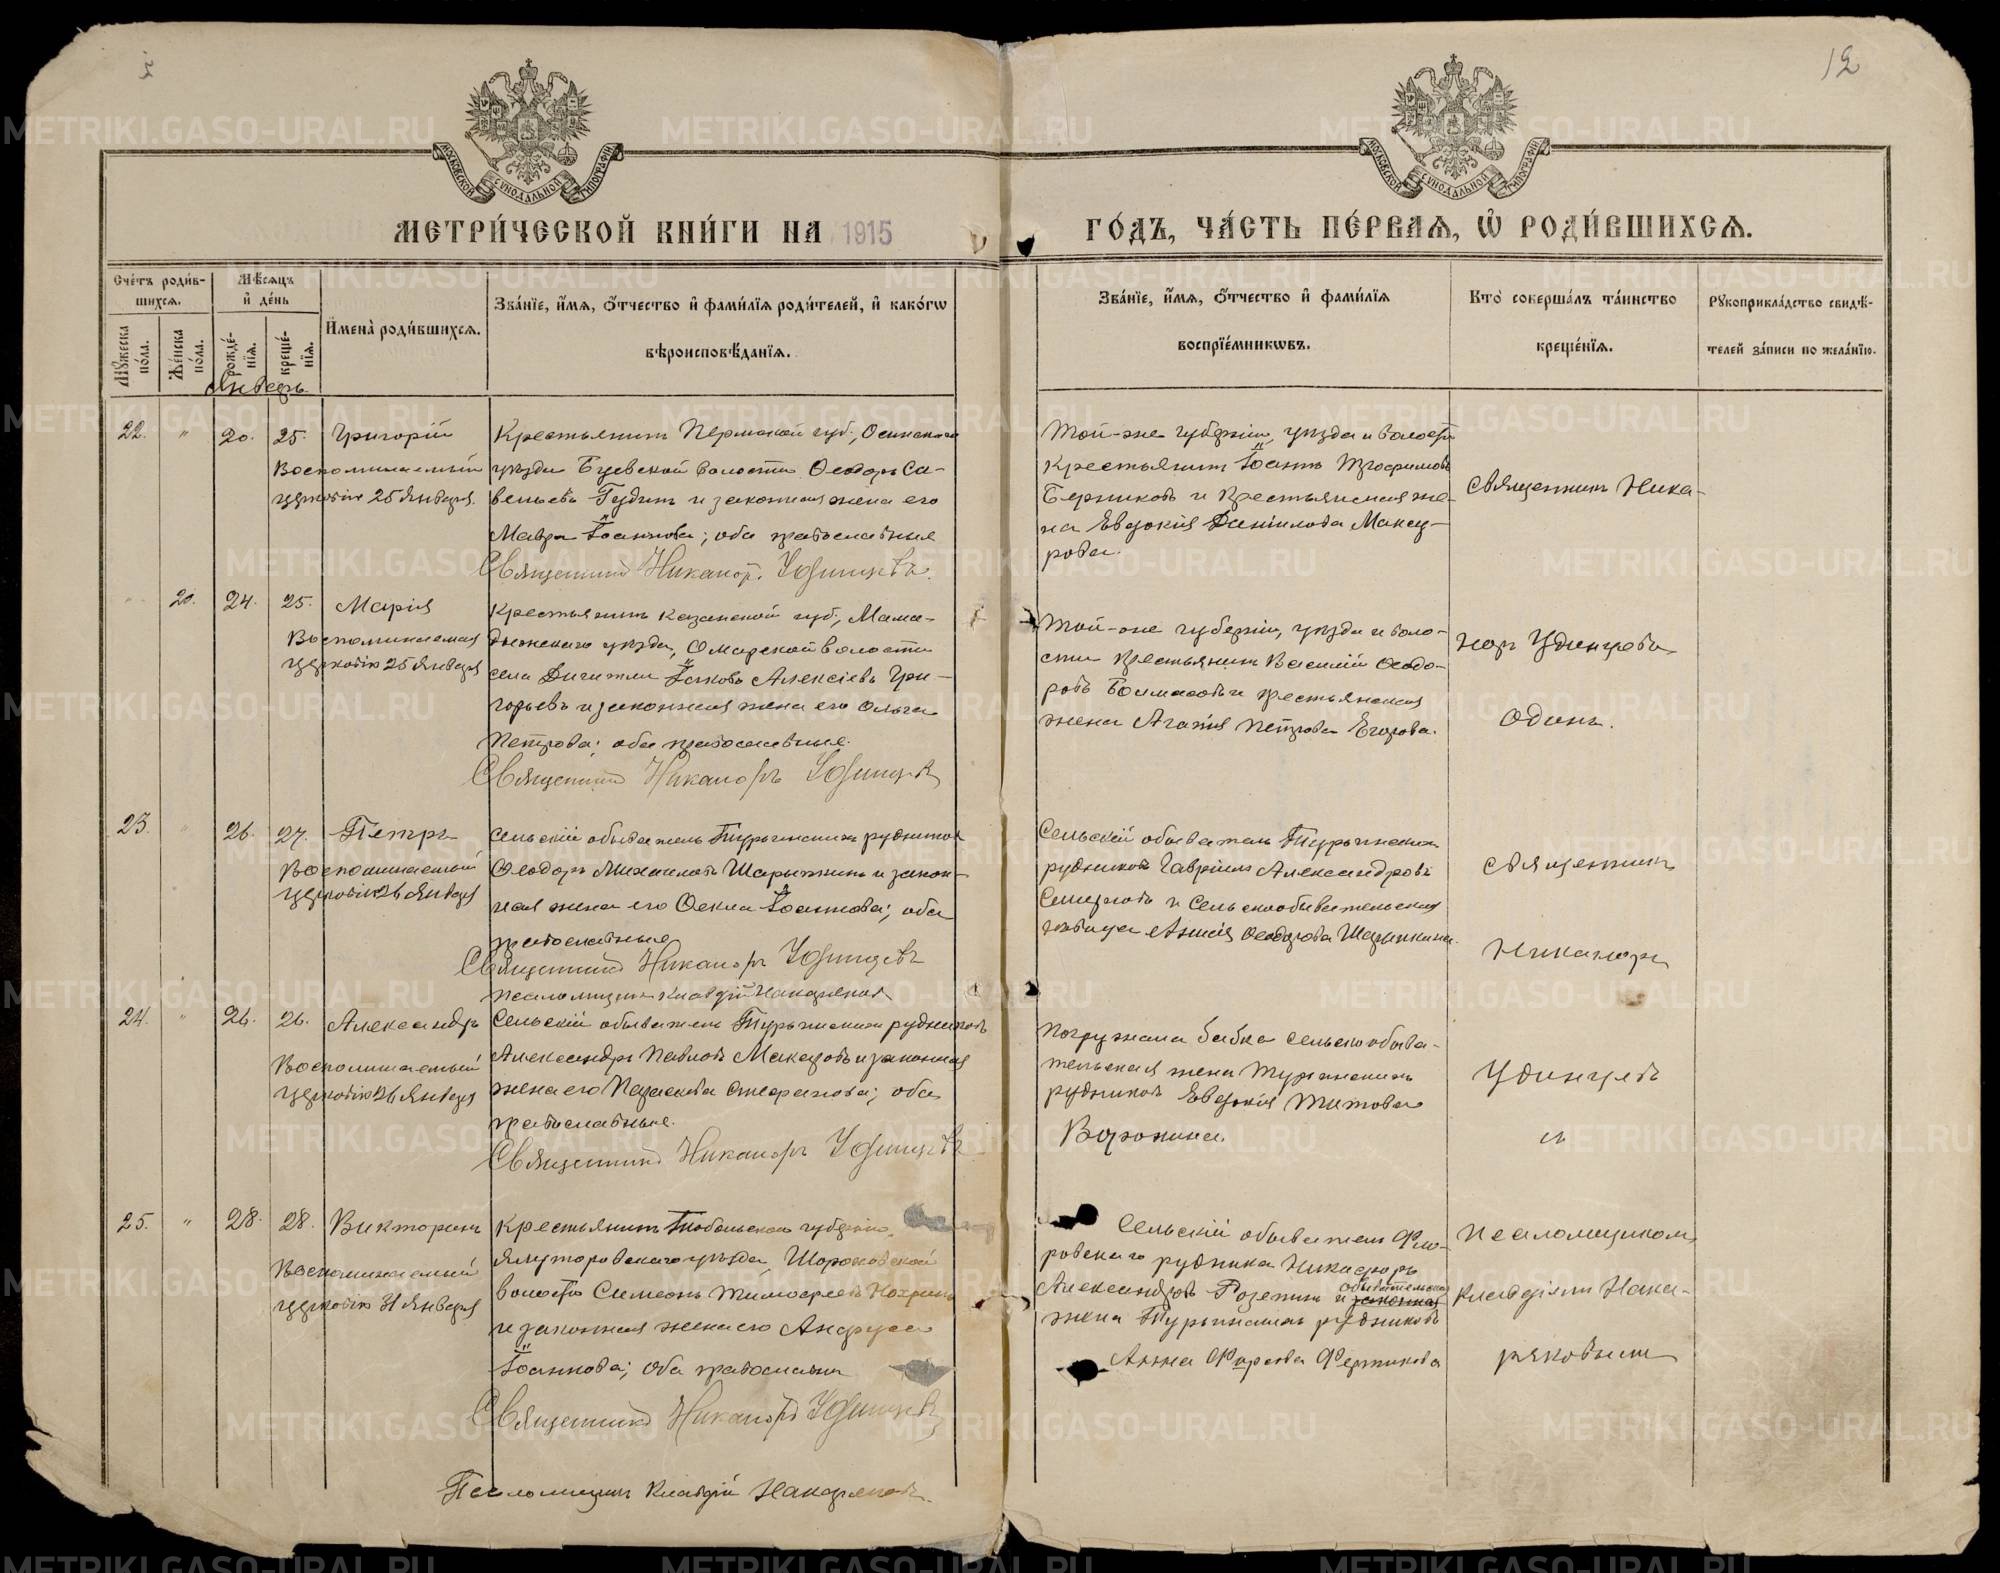 12
МОСКОВСКОЙ СѴНОДАЛЬНОЙ ТИПОГРАФІИ
МОСКОВСКОЙ СѴНОДАЛЬНОЙ ТИПОГРАФІИ
МЕТРИ́ЧЕСКОЙ КНИ́ГИ НА 1915
ГО́ДЪ, ЧА́СТЬ ПЕ́РВАЯ, Ѡ҆ РОДИ́ВШИХСЯ.
Сче́тъ роди́в-
шихся.
Мѣ́сяцъ
и҆ де́нь
Мꙋ́жеска по́ла.
Же́нска по́ла.
рожде́-нїя.
креще́-нїя.
И҆мена̀ роди́вшихся.
Зва́нїе, и҆́мя, ѻ҆́тчество и҆ фами́лїя роди́телей, и҆ како́гѡ
вѣроисповѣ́данїя.
Зва́нїе, и҆́мя, ѻ҆́тчество и҆ фами́лїя
воспрїе́мникѡвъ.
Кто̀ соверша́лъ та́инство
креще́нїя.
Рꙋкоприкла́дство свидѣ́-
телей за́писи по жела́нїю.
Январь
22. " 20. 25. Григорій
Воспоминаемый
церковію 25 Января.
Крестьянинъ Пермской губ., Осинскаго
уѣзда Буевской волости Ѳеодоръ Са-
вельевъ Гудинъ и законная жена его
Мавра Іоаннова; оба православные
Священникъ Никаноръ Удинцевъ.
Той-же губерніи, уѣзда и волости
крестьянинъ Іоаннъ
Берниковъ и крестьянская же-
на Евдокія Даніилова Мансу-
рова.
Священникъ Ника-
" 20. 24. 25. Марія
Воспоминаемая
церковію 25 Января
Крестьянинъ Казанской губ., Мама-
дышскаго уѣзда, Омарской волости
села Іаковъ Алексіевъ Гри-
горьевъ и законная жена его Ольга
Петрова; оба православные.
Священникъ Никаноръ Удинцевъ
Той-же губерніи, уѣзда и воло-
сти крестьянинъ Василій Ѳеодо-
ровъ и крестьянская
жена Агапія Петрова Егорова.
норъ Удинцевъ
одинъ.
23. " 26. 27. Петръ
Воспоминаемый
церковію 26 Января
Сельскій обыватель Турьинскихъ рудниковъ
Ѳеодоръ Михаиловъ Шарыжинъ и закон-
ная жена его Ѳекла Іоаннова; оба
православные
Священникъ Никаноръ Удинцевъ
псаломщикъ Клавдій Накаряковъ
Сельскій обыватель Турьинскихъ
рудниковъ Гавріилъ Александровъ
и сельскообывательская
Анна Ѳеодорова
Священникъ
Никаноръ
24. " 26. 26. Александръ
Воспоминаемый
церковію 26 Января
Сельскій обыватель Турьинскихъ рудниковъ
Александръ Павловъ Макаровъ и законная
жена его Параскева Стефанова; оба
православные.
Священникъ Никаноръ Удинцевъ
Погружала бабка сельскообыва-
тельская жена Турьинскихъ
рудниковъ Евдокія Титова
Воронина.
Удинцевъ
и
25. " 28. 28. Викторинъ
Воспоминаемый
церковію 31 Января
Крестьянинъ Тобольской губерніи,
Ялуторовскаго уѣзда, Шороховской
волости Симеонъ Тимофеевъ
и законная жена его
Іоаннова; оба православны
Священникъ Никаноръ Удинцевъ
Псаломщикъ Клавдій Накаряковъ.
Сельскій обыватель Фро-
ловскаго рудника Никифоръ
Александровъ и обывательская
жена Турьинскихъ рудниковъ
Анна Фирсова
псаломщикомъ
Клавдіемъ Нака-
ряковымъ
METRIKI.GASO-URAL.RU